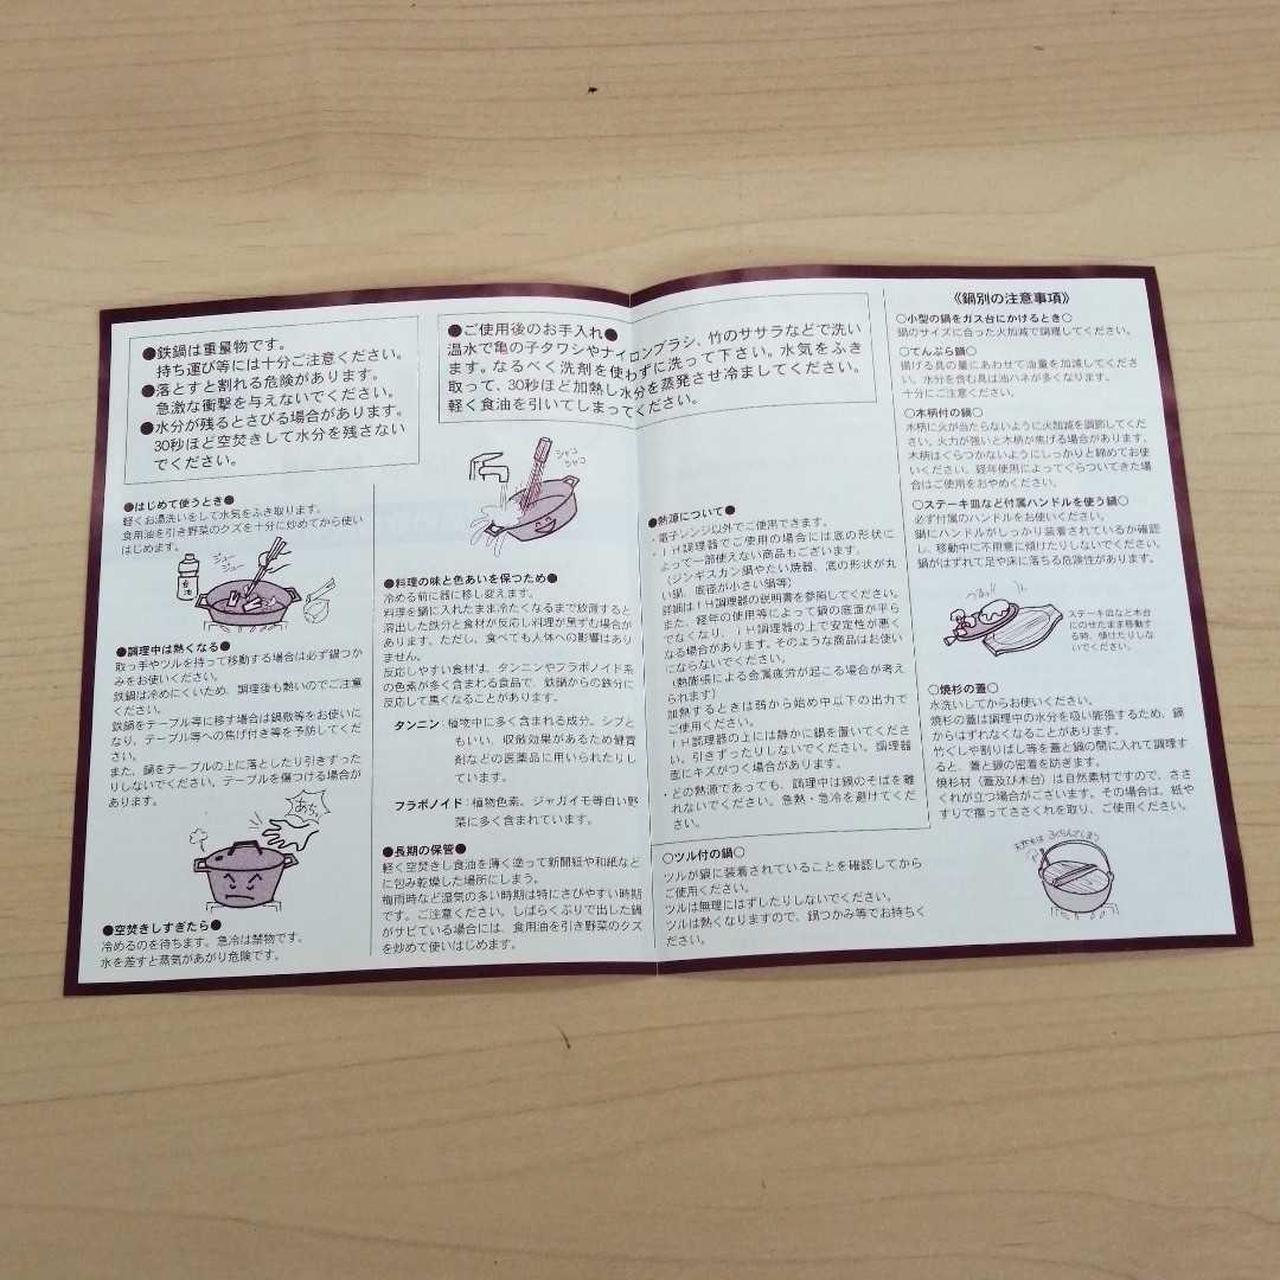 ●鉄鍋は重量物です。
持ち運び等には十分ご注意ください。
●落とすと割れる危険があります。
急激な衝撃を与えないでください。
●水分が残るとさびる場合があります。
30秒ほど空焚きして水分を残さない
でください。
●ご使用後のお手入れ●
温水で亀の子タワシやナイロンブラシ、竹のササラなどで洗い
ます。なるべく洗剤を使わずに洗って下さい。水気をふき
取って、30秒ほど加熱し水分を蒸発させ冷ましてください。
軽く食油を引いてしまってください。
●はじめて使うとき●
軽くお湯洗いをして水気をふき取ります。
食用油を引き野菜のクズを十分に炒めてから使い
はじめます。
ジュー
ジュー
食油
●調理中は熱くなる●
取っ手やツルを持って移動する場合は必ず鍋つか
みをお使いください。
鉄鍋は冷めにくいため、調理後も熱いのでご注意
ください。
鉄鍋をテーブル等に移す場合は鍋敷等をお使いに
なり、テーブル等への焦げ付き等を予防してくだ
さい。
また、鍋をテーブルの上に落としたり引きずった
りしないでください。テーブルを傷つける場合が
あります。
あちっ
●空焚きしすぎたら●
冷めるのを待ちます。急冷は禁物です。
水を差すと蒸気があがり危険です。
シャコ
シャコ
●料理の味と色あいを保つため●
冷める前に器に移し変えます。
料理を鍋に入れたまま冷たくなるまで放置すると
溶出した鉄分と食材が反応し料理が黒ずむ場合が
あります。ただし、食べても人体への影響はあり
ません。
反応しやすい食材は、タンニンやフラボノイド系
の色素が多く含まれる食品で、鉄鍋からの鉄分に
反応して黒くなることがあります。
タンニン：植物中に多く含まれる成分。シブと
もいい、収斂効果があるため健胃
剤などの医薬品に用いられたりし
ています。
フラボノイド：植物色素。ジャガイモ等白い野
菜に多く含まれています。
●長期の保管●
軽く空焚きし食油を薄く塗って新聞紙や和紙など
に包み乾燥した場所にしまう。
梅雨時など湿気の多い時期は特にさびやすい時期
です。ご注意ください。しばらくぶりで出した鍋
がサビている場合には、食用油を引き野菜のクズ
を炒めて使いはじめます。
●熱源について●
・電子レンジ以外でご使用できます。
・ＩＨ調理器でご使用の場合には底の形状に
よって一部使えない商品もございます。
（ジンギスカン鍋やたい焼器、底の形状が丸
い鍋、底径が小さい鍋等）
詳細はＩＨ調理器の説明書を参照してください。
また、経年の使用等によって鍋の底面が平ら
でなくなり、ＩＨ調理器の上で安定性が悪く
なる場合があります。そのような商品はお使い
にならないでください。
（熱膨張による金属疲労が起こる場合が考え
られます）
加熱するときは弱から始め中以下の出力で
ご使用ください。
ＩＨ調理器の上には静かに鍋を置いてくださ
い。引きずったりしないでください。調理器
面にキズがつく場合があります。
・どの熱源であっても、調理中は鍋のそばを離
れないでください。急熱・急冷を避けてくだ
さい。
○ツル付の鍋○
ツルが鍋に装着されていることを確認してから
ご使用ください。
ツルは無理にはずしたりしないでください。
ツルは熱くなりますので、鍋つかみ等でお持ちく
ださい。
《鍋別の注意事項》
○小型の鍋をガス台にかけるとき○
鍋のサイズに合った火加減で調理してください。
○てんぷら鍋○
揚げる具の量にあわせて油量を加減してくださ
い。水分を含む具は油ハネが多くなります。
十分にご注意ください。
○木柄付の鍋○
木柄に火が当たらないように火加減を調節してくだ
さい。火力が強いと木柄が焦げる場合があります。
木柄はぐらつかないようにしっかりと締めてお使
いください。経年使用によってぐらついてきた場
合はご使用をおやめください。
○ステーキ皿など付属ハンドルを使う鍋○
必ず付属のハンドルをお使いください。
鍋にハンドルがしっかり装着されているか確認
し、移動中に不用意に傾けたりしないでください。
鍋がはずれて足や床に落ちる危険性があります。
ステーキ皿など木台
にのせたまま移動す
る時、傾けたりしな
いでください。
○焼杉の蓋○
水洗いしてからお使いください。
焼杉の蓋は調理中の水分を吸い膨張するため、鍋
からはずれなくなることがあります。
竹ぐしや割りばし等を蓋と鍋の間に入れて調理す
ると、蓋と鍋の密着を防ぎます。
焼杉材（蓋及び木台）は自然素材ですので、ささ
くれが立つ場合がございます。その場合は、紙や
すりで擦ってささくれを取り、ご使用ください。